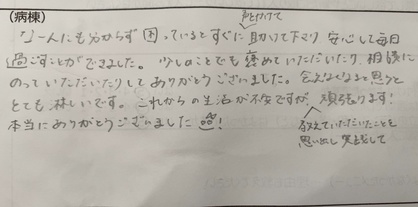 (病棟)
声をかけて
なーんにも分からず困っているとすぐに助けて下さり 安心して毎日
過ごすことができました。少しのことでも褒めていただいたり、相談に
のっていただいたりしてありがとうございました。会えなくなると思うと
とても淋しいです。これからの生活が不安ですが、頑張ります!
教えていただいたことを
思い出し 実践して
本当にありがとうございました!